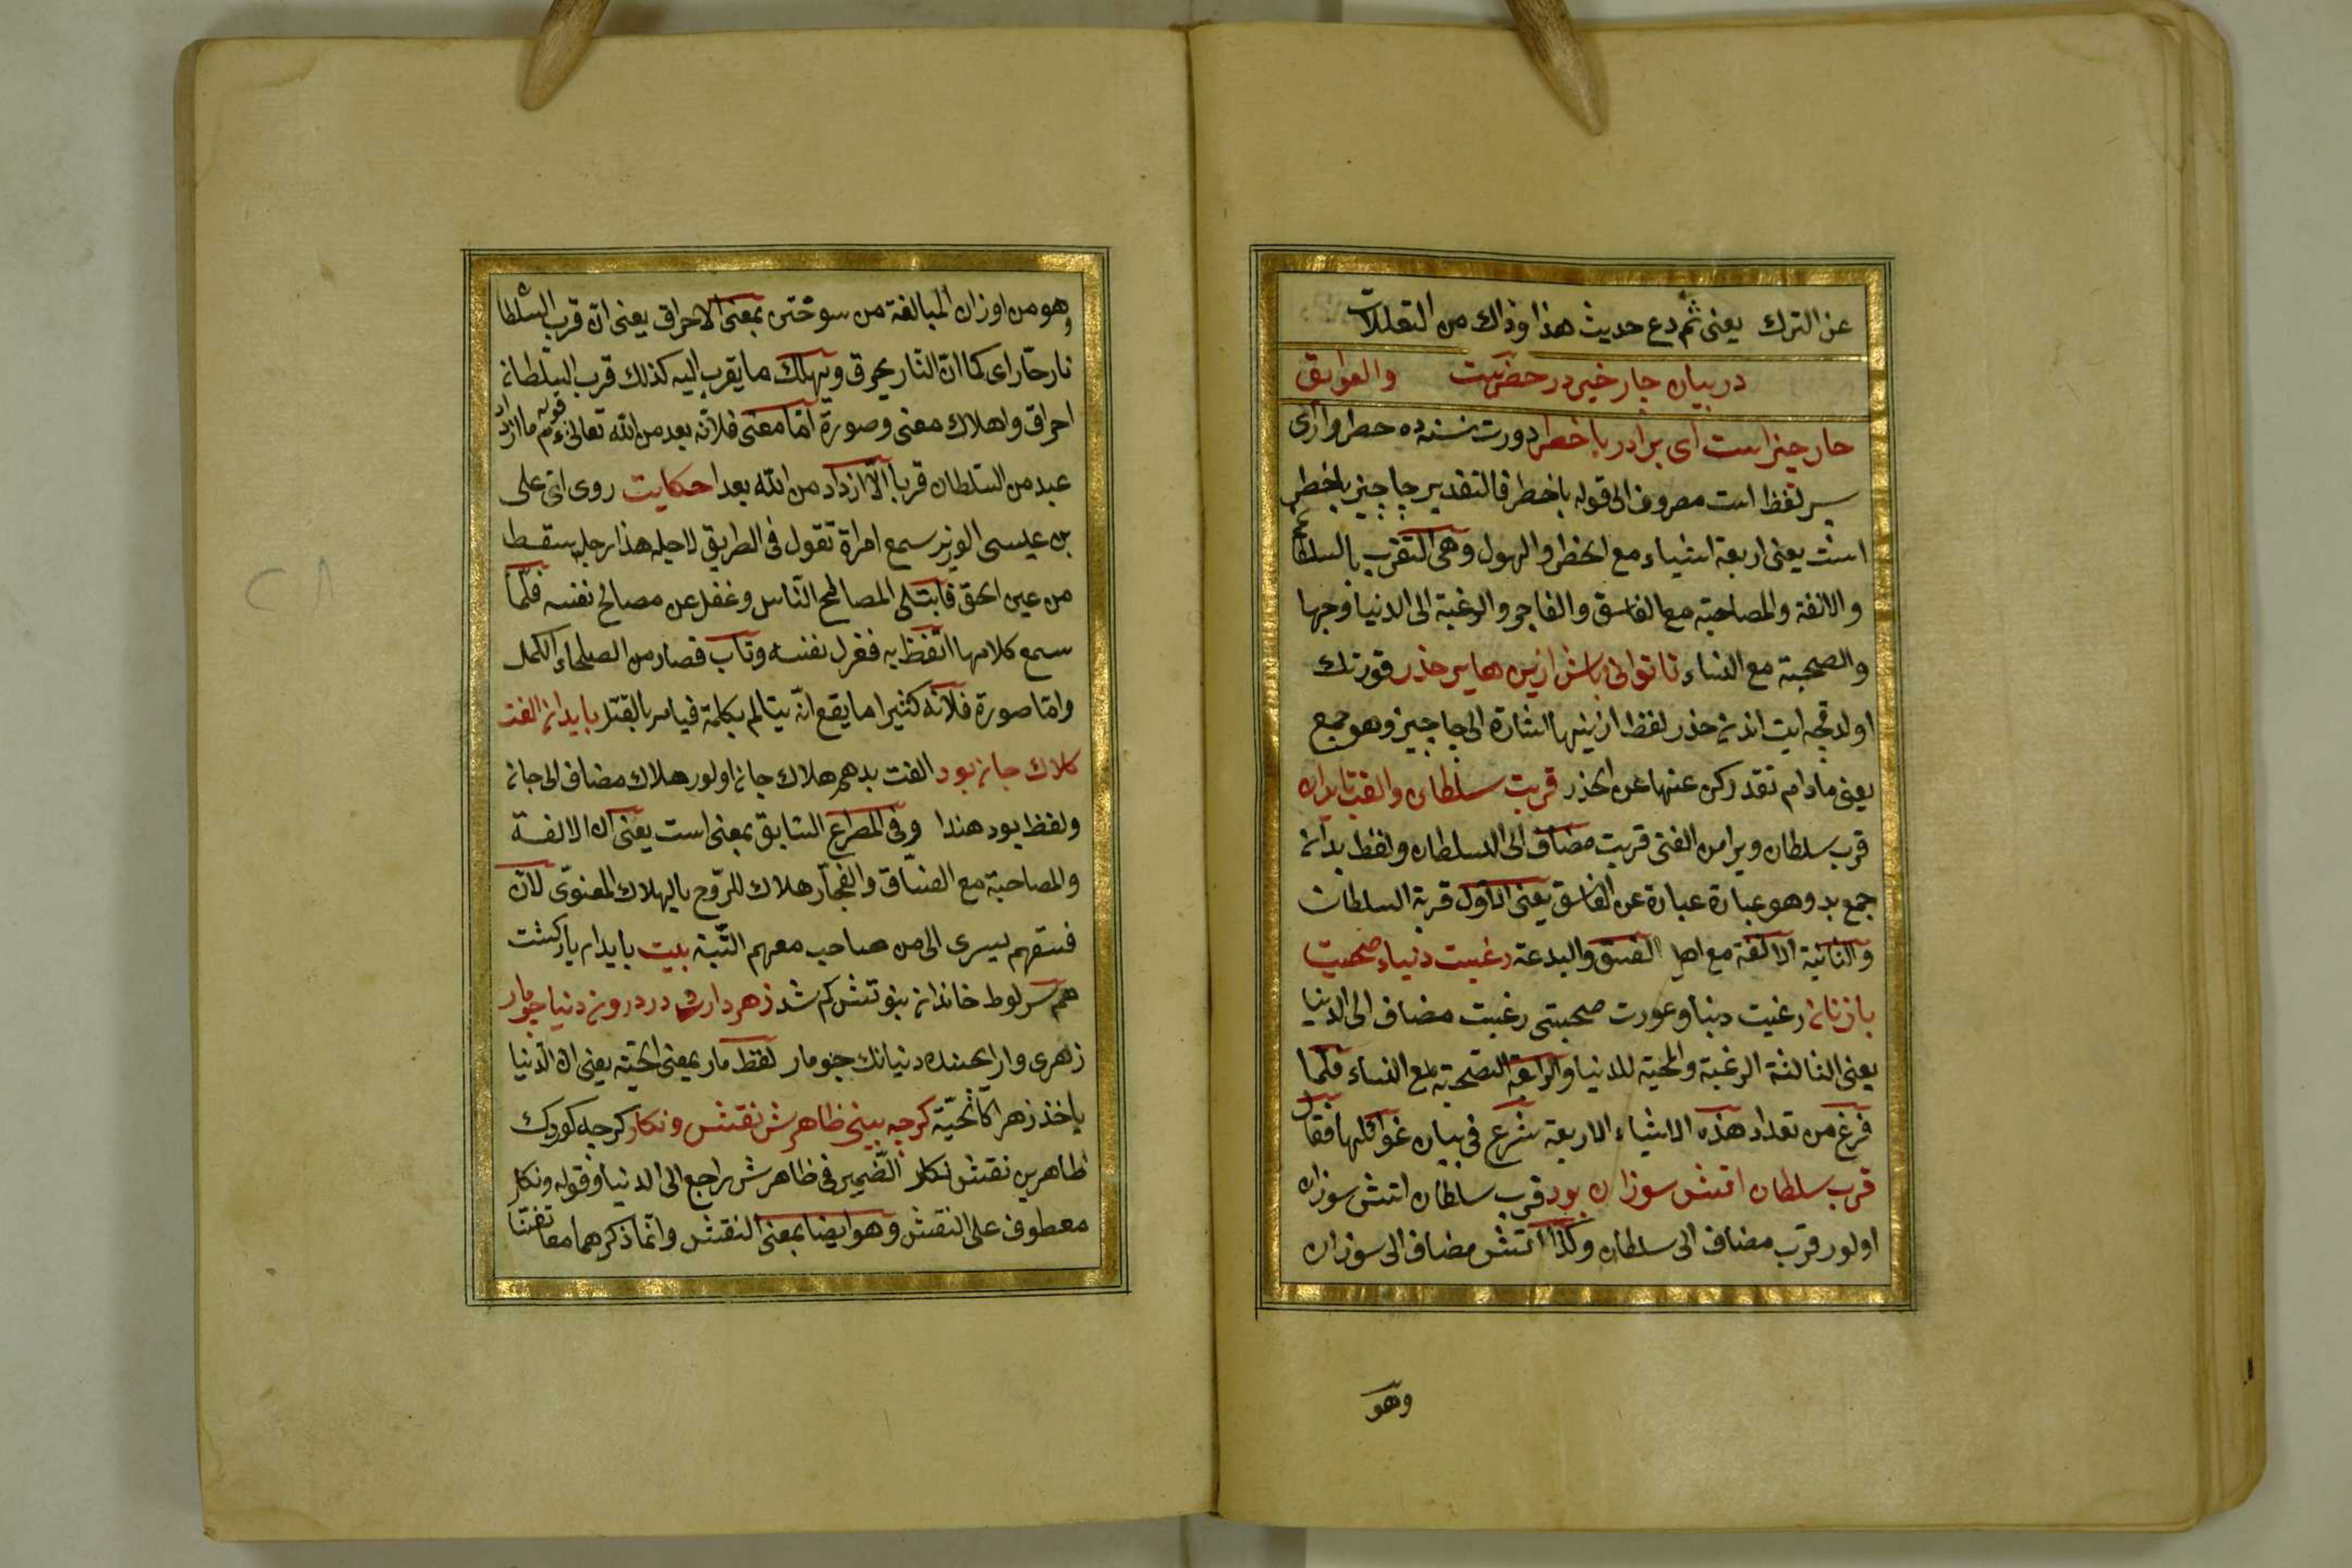 عن الترك يعنى ثم دع حديث هذا وذاك من التعللات
در بيان چار خير در حضرتت والعوايق
چار چيز است اى برادر با خطر دورت نسنه ده حطر وارى
سر لفظ است مصروف الى قوله باخطر فالتقدير چا چيز باخطر
است يعنى اربعة اشياء مع الخطر والهول وهى التقرب بالسلطان
والالفة والمصاحبة مع الفاسق والفاجر والرغبة الى الدنيا وجها
والصحبة مع النساء تا توانى باش ازين هاپر حذر قورتك
اولدقجه ايت اندن حذر لفظ ازينها اشارة الى چا چيز وهو جمع
يعنى مادام تقدر كن عنها عن الحذر قربت سلطان والفت با بدان
قرب سلطان ويرامن الفتى قربت مضاف الى السلطان ولفظ بدان
جمع بد وهو عبارة عبارة عن الفاسق يعنى الاول قربة السلطان
والثانية الالفة مع اهل الفسق والبدعة رغبت دنياء صحبت
با زنان رغبت دنيا وعورت صحبتى رغبت مضاف الى الدنيا
يعنى الثالثة الرغبة والمحبة للدنيا والرابعة الصحبة مع النساء فلما
فرغ من تعداد هذه الاشياء الاربعة شرع فى بيان غوائلها فقال
قرب سلطان اتش سوزان بود قرب سلطان اتش سوزان
اولور قرب مضاف الى سلطان وكذا اتش مضاف الى سوزان
وهو
وهو من اوزان المبالغة من سوختن بمعنى الاحراق يعنى ان قرب السلطان
نار حار اى كما ان النار يحرق ويهلك ما يقرب اليه كذلك قرب السلطان
احراق واهلاك معنى وصورة اما معنى فلانه بعد من الله تعالى قوله عم ما ازداد
عبد من السلطان قربا الا ازداد من الله بعدا حكايت روى ان على
بن عيسى الوزير سمع امراة تقول فى الطريق لاجله هذا رجل سقط
من عين الحق فابتلى المصالح الناس وغفل عن مصالح نفسه فلما
سمع كلامها اتفظ به فعزل نفسه وتاب فصار من الصلحاء الكمل
واما صورة فلانه كثيرا ما يقع انه يتالم بكلمة فيامر بالقتل با بدان الفت
كلاك جان بود الفت بدهم هلاك جان اولور هلاك مضاف الى جان
ولفظ بود هندا وفى المصراع السابق بمعنى است يعنى ان الالفة
والمصاحبة مع الفساق والفجار هلاك للروح بالهلاك المعنوى لان
فسقهم يسرى الى من صاحب معهم البتة بيت با بدان يار كشت
همسر لوط خاندان بنوتش كم شد زهر دارد در درون دنيا چومار
زهرى وار ايحنده دنيانك چومار لفظ مار بمعنى الحية يعنى ان الدنيا
ياخذ زهرا كالحية كرچه بينى ظاهرش نقش ونكار كرچه كوردك
ظاهرين نقش نكار الضمير فى ظاهرش راجع الى الدنيا وقوله ونكار
معطوف على النقش وهو ايضا بمعنى النقش وانما ذكرهما معا تفننا